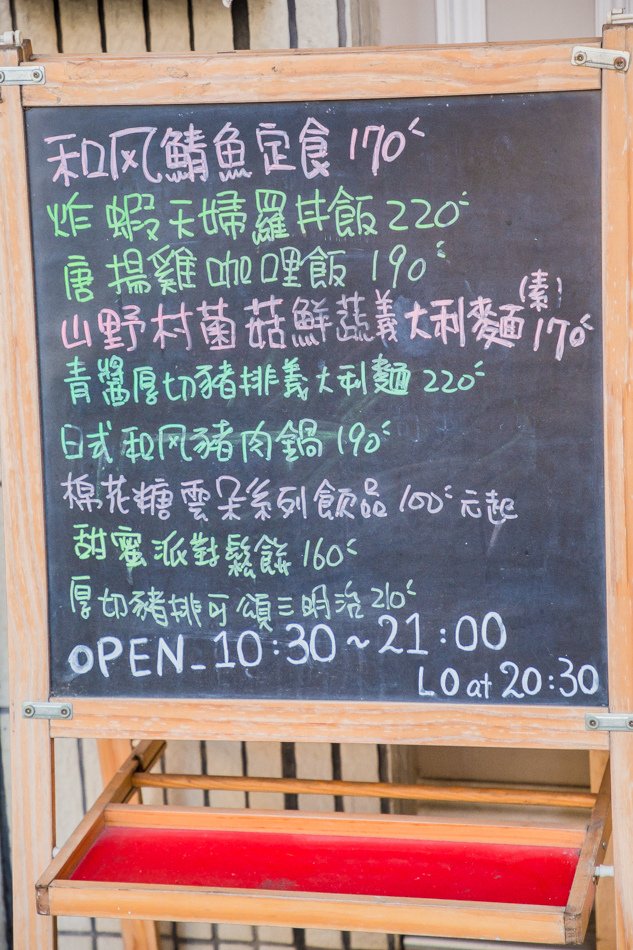 和风鯖魚定食 170
炸蝦天婦羅丼飯 220
唐揚雞咖哩飯 190
山野村菌菇鮮蔬義大利麵 170 (素)
青醬厚切豬排義大利麵 220
日式和风豬肉鍋 190
棉花糖雲朵系列飲品 100元起
甜蜜派對鬆餅 160
厚切豬排可頌三明治 210
OPEN_10:30~21:00
LO at 20:30